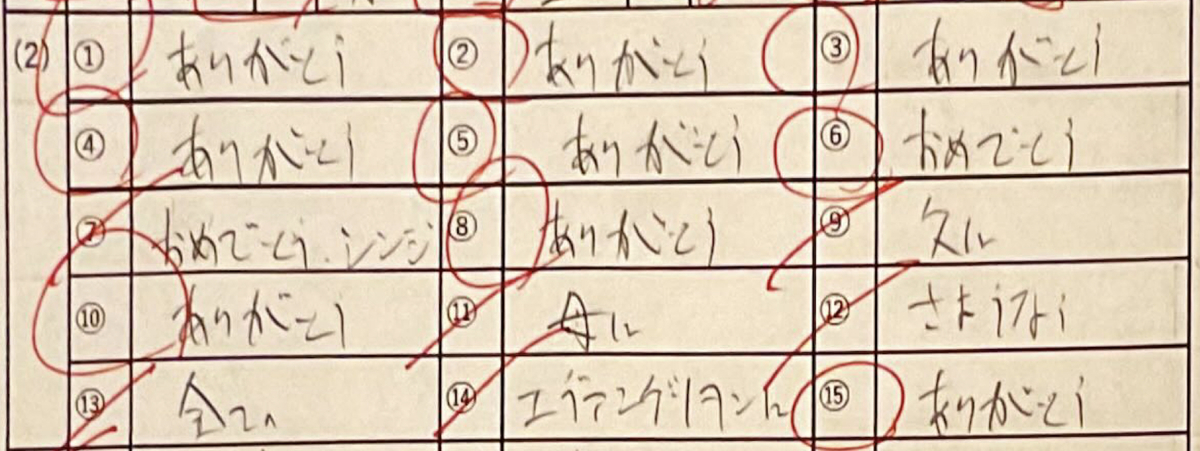 (2) ① ありがとう ② ありがとう ③ ありがとう
④ ありがとう ⑤ ありがとう ⑥ おめでとう
⑦ おめでとう、シンジ ⑧ ありがとう ⑨ 父に
⑩ ありがとう ⑪ 母に ⑫ さようなら
⑬ 全ての ⑭ エヴァンゲリヲンに ⑮ ありがとう